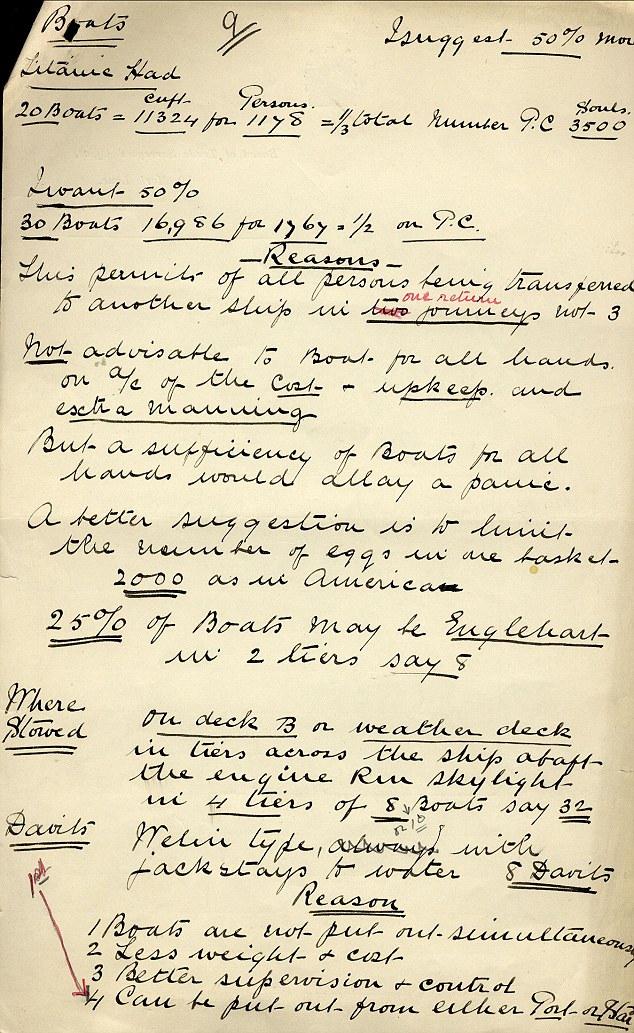 Boats 9 I suggest 50% mor
Titanic Had
20 Boats = 11324 cuft for 1178 Persons. = 1/3 total Number P.C 3500 Souls.
I want 50%
30 Boats 16,986 for 1767 = 1/2 on P.C.
- Reasons -
This permits of all persons being transferred
to another ship in two one return journeys not 3
Not advisable to Boat for all hands.
on a/c of the Cost + upkeep. and
extra manning
But a sufficiency of Boats for all
hands would allay a panic.
A better suggestion is to limit
the number of eggs in one basket
2000 as in American
25% of Boats may be Englehart
in 2 tiers say 8
Where
Stowed
on deck B or weather deck
in tiers across the ship abaft
the engine Rm skylight
in 4 tiers of 8 Boats say 32
or 10
Davits
Welin type, always with
jackstays to water 8 Davits
Reason
1st
1 Boats are not put out simultaneously
2 Less weight & cost
3 Better supervision & control
4 Can be put out from either Port or Star